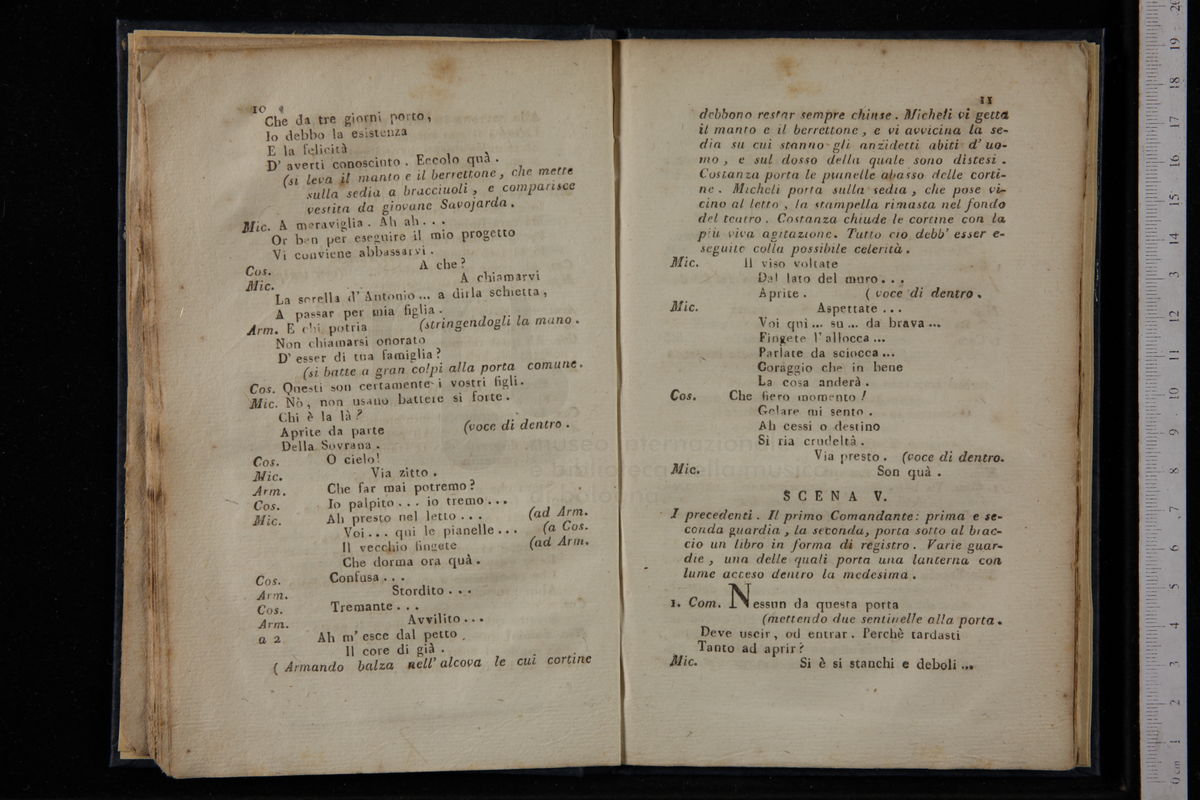 10
Che da tre giorni porto,
Io debbo la esistenza
E la felicità
D' averti conosciuto. Eccolo quà.
(si leva il manto e il berrettone, che mette
sulla sedia a bracciuoli, e comparisce
vestita da giovane Savojarda.
Mic. A meraviglia. Ah ah...
Or ben per eseguire il mio progetto
Vi conviene abbassarvi.
Cos. A che?
Mic. A chiamarvi
La sorella d' Antonio... a dirla schietta,
A passar per mia figlia.
Arm. E chi potria (stringendogli la mano.
Non chiamarsi onorato
D' esser di tua famiglia?
(si batte a gran colpi alla porta comune.
Cos. Questi son certamente i vostri figli.
Mic. Nò, non usano battere sì forte.
Chi è la là?
Aprite da parte (voce di dentro.
Della Sovrana.
Cos. O cielo!
Mic. Via zitto.
Arm. Che far mai potremo?
Cos. Io palpito... io tremo...
Mic. Ah presto nel letto... (ad Arm.
Voi... qui le pianelle... (a Cos.
Il vecchio fingete (ad Arm.
Che dorma ora quà.
Cos. Confusa...
Arm. Stordito...
Cos. Tremante...
Arm. Avvilito...
a 2 Ah m' esce dal petto
Il core di già.
(Armando balza nell' alcova le cui cortine
11
debbono restar sempre chiuse. Micheli vi getta
il manto e il berrettone, e vi avvicina la se-
dia su cui stanno gli anzidetti abiti d' uo-
mo, e sul dosso della quale sono distesi.
Costanza porta le pianelle abasso delle corti-
ne. Micheli porta sulla sedia, che pose vi-
cino al letto, la stampella rimasta nel fondo
del teatro. Costanza chiude le cortine con la
più viva agitazione. Tutto ciò debb' esser e-
seguito colla possibile celerità.
Mic. Il viso voltate
Dal lato del muro...
Aprite. (voce di dentro.
Mic. Aspettate...
Voi qui... su... da brava...
Fingete l' allocca...
Parlate da sciocca...
Coraggio che in bene
La cosa anderà.
Cos. Che fiero momento!
Gelare mi sento.
Ah cessi o destino
Si ria crudeltà.
Via presto. (voce di dentro.
Mic. Son quà.
SCENA V.
I precedenti. Il primo Comandante: prima e se-
conda guardia, la seconda, porta sotto al brac-
cio un libro in forma di registro. Varie guar-
die, una delle quali porta una lanterna con
lume acceso dentro la medesima.
1. Com. Nessun da questa porta
(mettendo due sentinelle alla porta.
Deve uscir, od entrar. Perchè tardasti
Tanto ad aprir?
Mic. Si è si stanchi e deboli...
museo internazionale
e biblioteca della musica
di bologna
0 cm 1 2 3 4 5 6 7 8 9 10 11 12 13 14 15 16 17 18 19 20